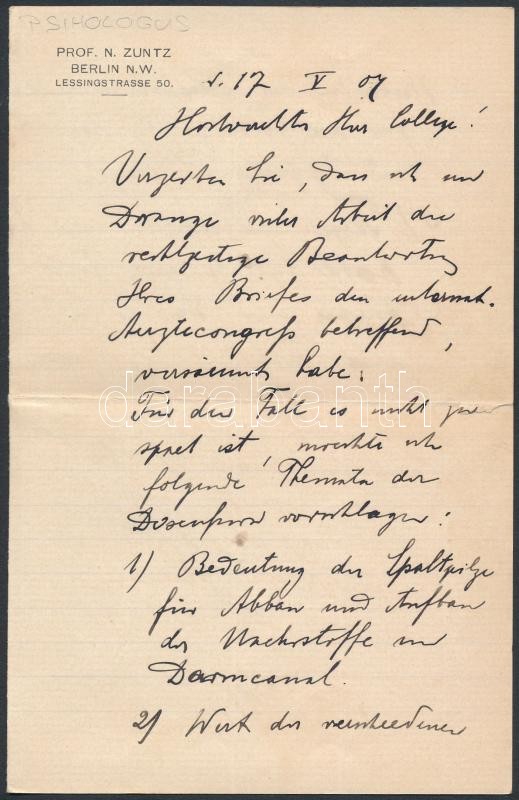 PSIHOLOGUS
PROF. N. ZUNTZ
BERLIN N.W.
LESSINGSTRASSE 50.
d. 17 V 07
Hochverehrter Herr College!
Verzeihen Sie, dass ich im
Drange vieler Arbeit die
rechtzeitige Beantwortung
Ihres Briefes den internat.
Aerztecongress betreffend,
versäumt habe.
Für den Fall es nicht zu
spaet ist, moechte ich
folgende Themata der
Discussion vorschlagen:
1) Bedeutung der Spaltpilze
für Abbau und Aufbau
der Naehrstoffe im
Darmcanal.
2) Wert der verschiedenen
darabanth